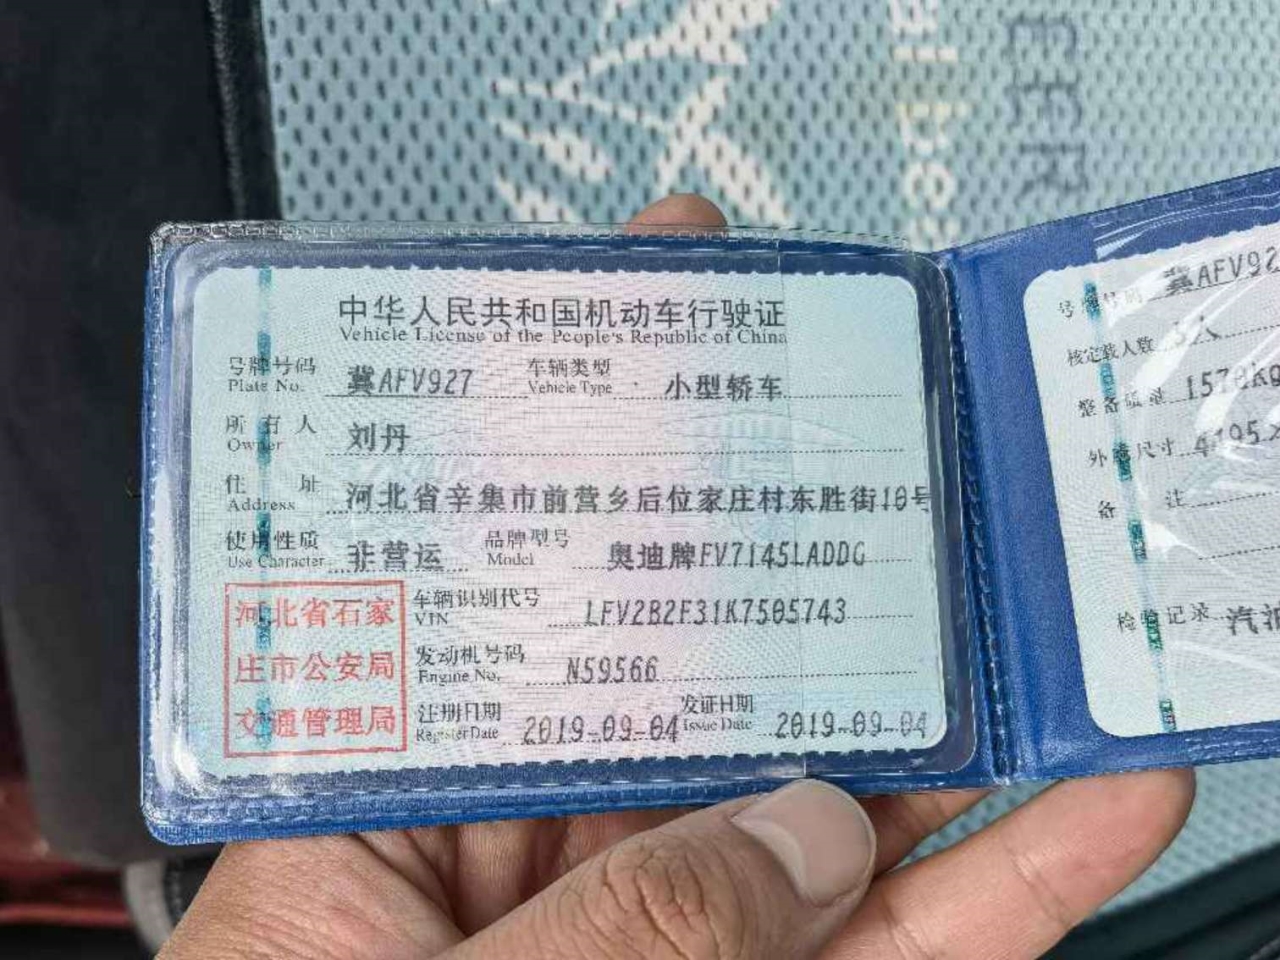 中华人民共和国机动车行驶证
Vehicle License of the People's Republic of China
号牌号码 冀AFV927 车辆类型 小型轿车
Plate No. Vehicle Type
所有人 刘丹
Owner
住址 河北省辛集市前营乡后位家庄村东胜街10号
Address
使用性质 非营运 品牌型号 奥迪牌FV7145LADDG
Use Character Model
车辆识别代号 LFV2B2F31K7505743
VIN
发动机号码 N59566
Engine No.
注册日期 2019-09-04 发证日期 2019-09-04
Register Date Issue Date
河北省石家
庄市公安局
交通管理局
号牌号码 冀AFV92
核定载人数 5人
整备质量 1570kg
外廓尺寸
备注
检验记录 汽油
EER